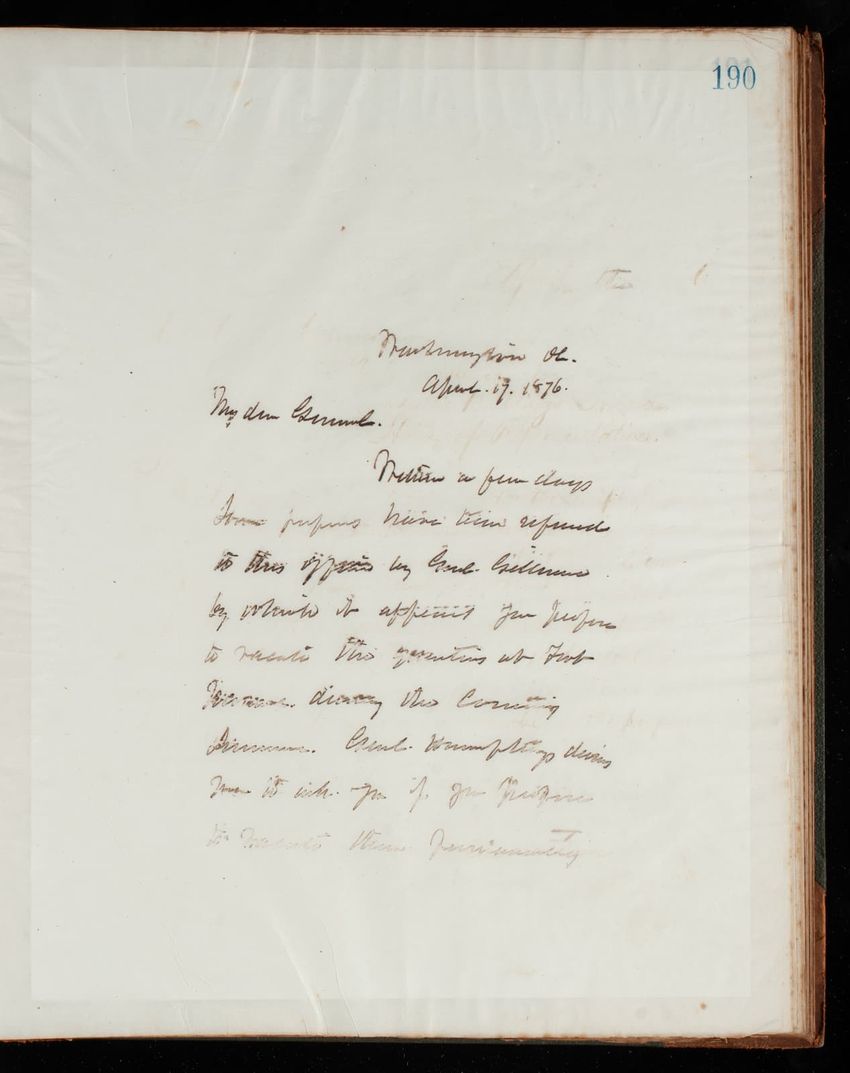 190
Washington DC.
April. 17. 1876.
My dear General.
Within a few days
Some papers have been referred
to this office by Genl. Gillmore
by which it appears you propose
to vacate the quarters at Fort
during the Coming
Summer. Genl. Humphreys desires
me to ask you if you propose
to vacate them permanently